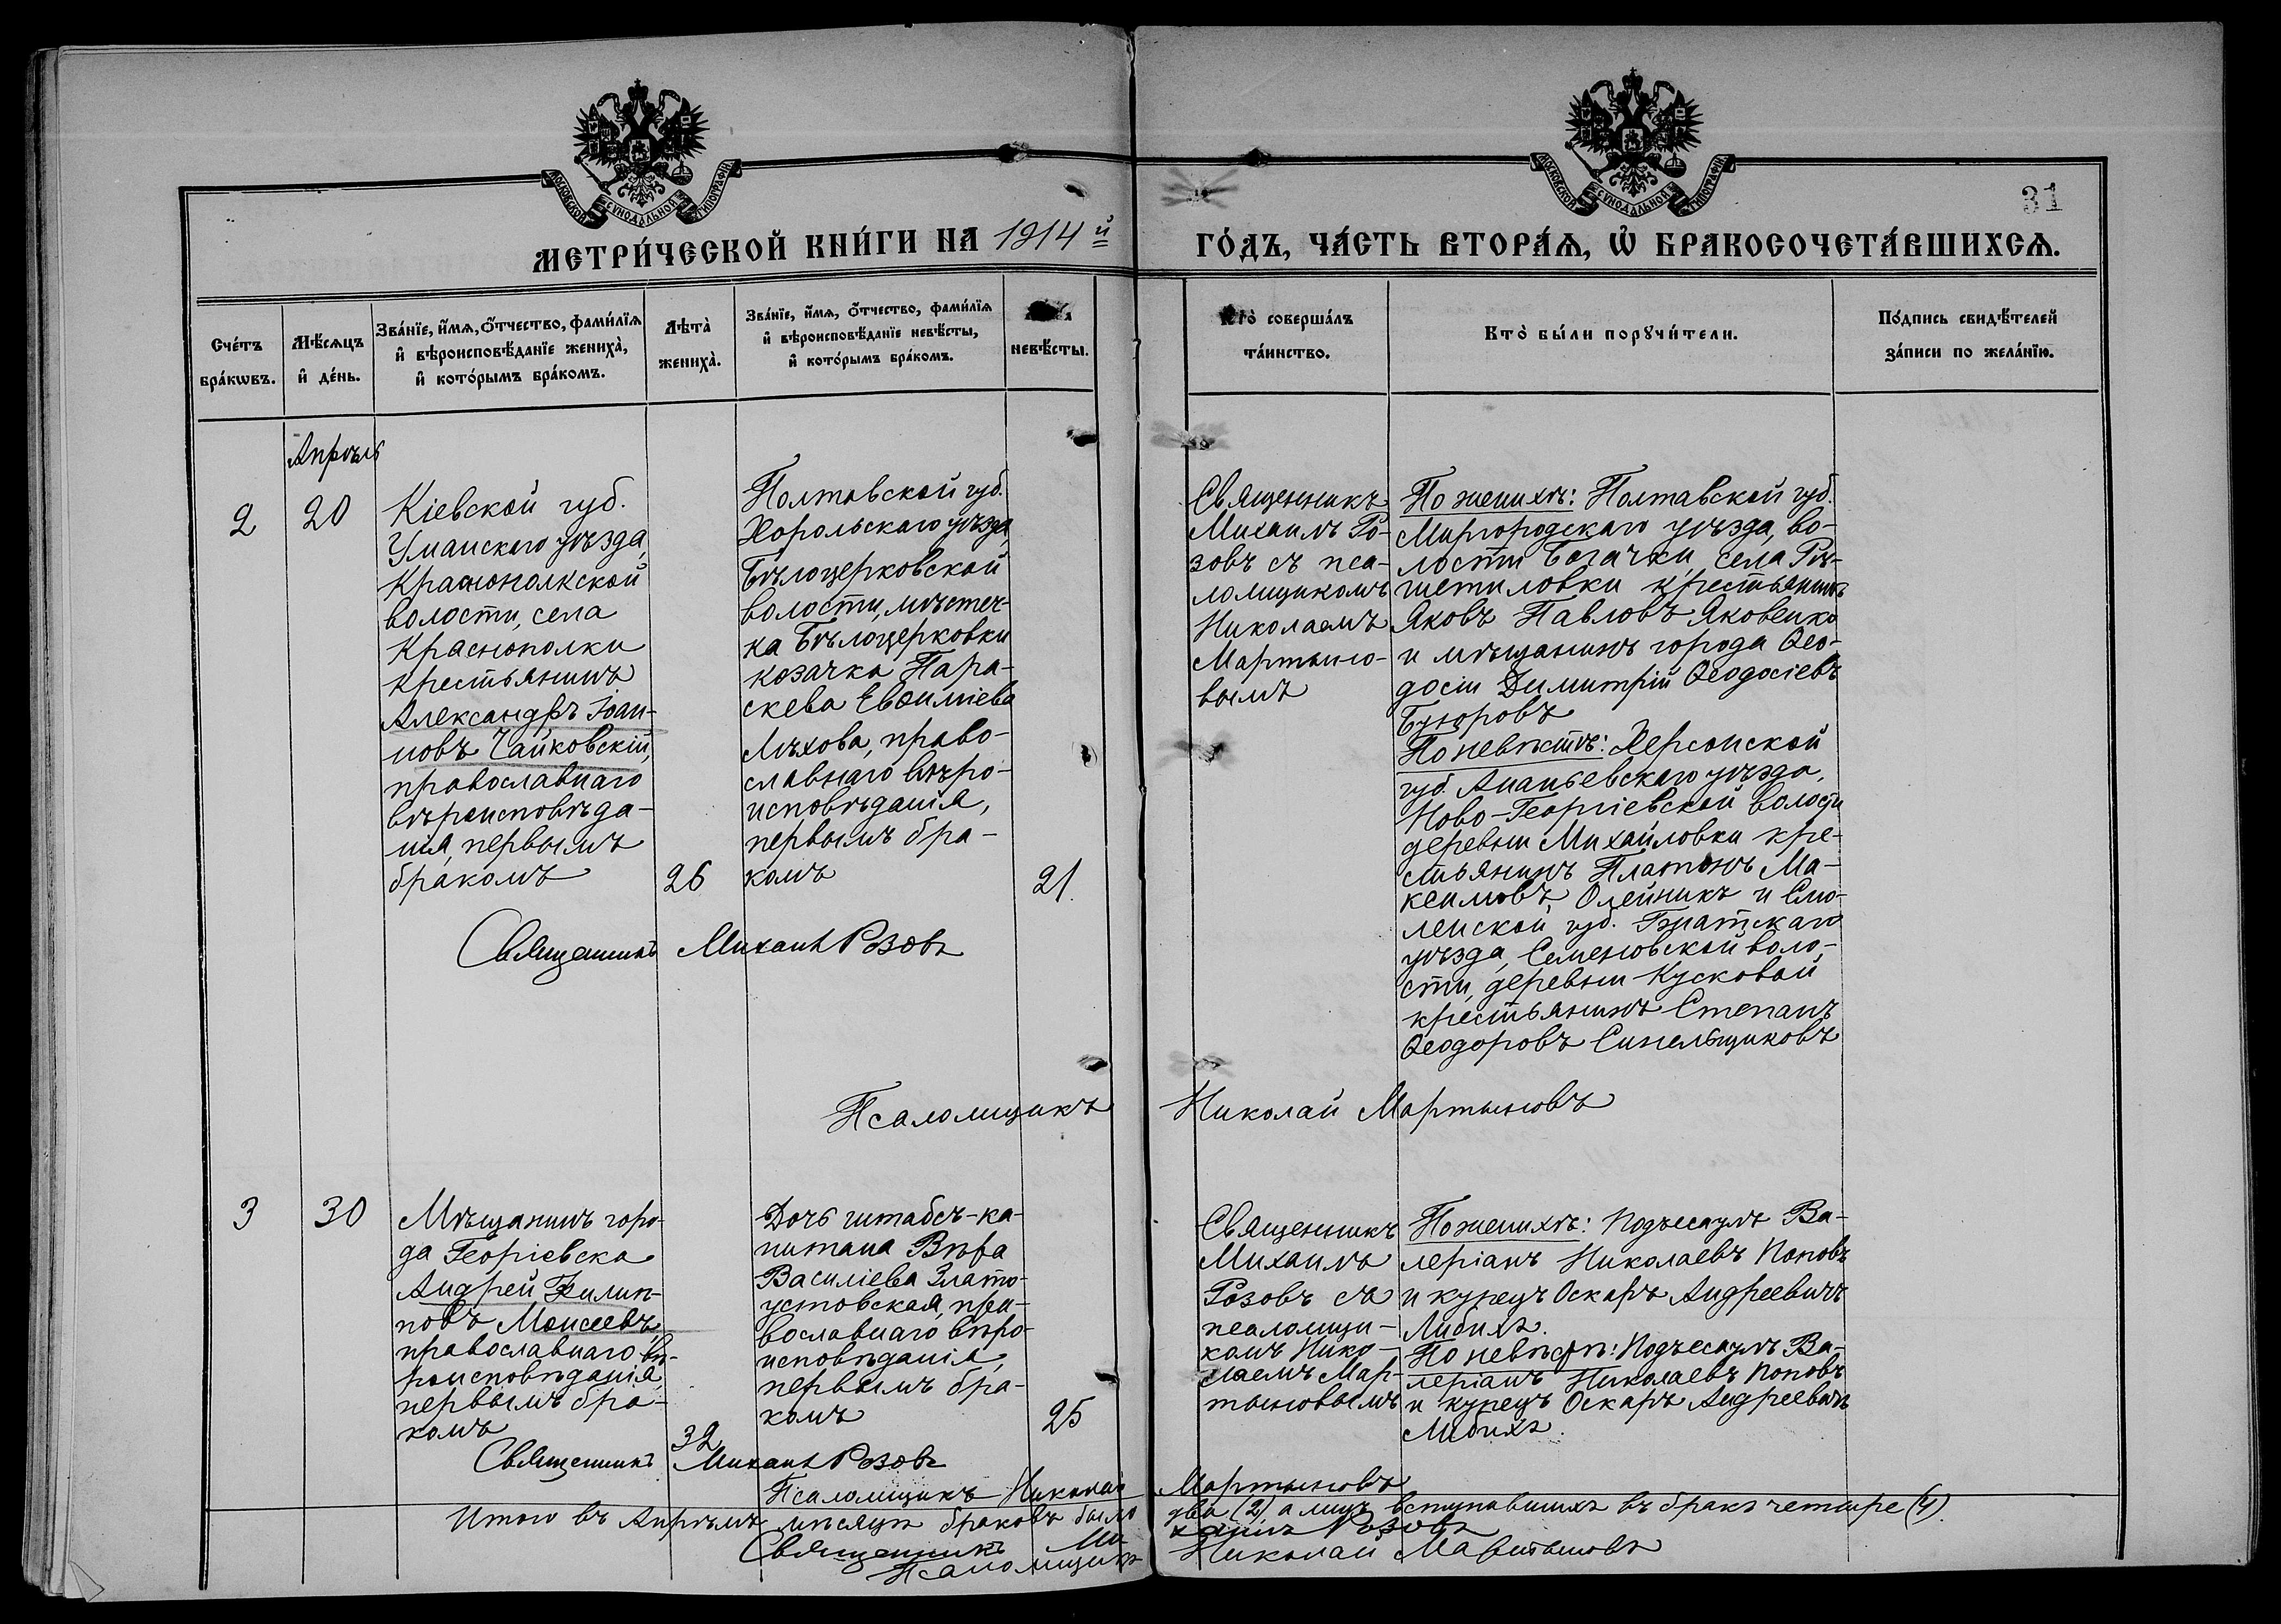 МОСКОВСКОЙ СѴНОДАЛЬНОЙ ТИПОГРАФІИ
МОСКОВСКОЙ СѴНОДАЛЬНОЙ ТИПОГРАФІИ
31
МЕТРИ́ЧЕСКОЙ КНИ́ГИ НА 1914й
ГО́ДЪ, ЧА́СТЬ ВТОРА́Ѧ, Ѽ БРАКОСОЧЕТА́ВШИХСѦ.
Сче́тъ бра́кѡвъ.
Мѣ́сѧцъ и҆ де́нь.
Зва́нїе, и҆́мѧ, ѻ҆́тчество, фами́лїѧ
и҆ вѣроисповѣ́данїе жениха̀,
и҆ кото́рымъ бра́комъ.
Лѣта̀ жениха̀.
Зва́нїе, и҆́мѧ, ѻ҆́тчество, фами́лїѧ
и҆ вѣроисповѣ́данїе невѣ́сты,
и҆ кото́рымъ бра́комъ.
невѣ́сты.
Кто̀ соверша́лъ
та́инство.
Кто̀ бы́ли порꙋчи́тели.
По́дпись свидѣ́телей
за́писи по жела́нїю.
Апрѣль
2
20
Кіевской губ.
Уманскаго уѣзда,
Краснополкской
волости, села
Краснополки
крестьянинъ
Александръ Іоан-
новъ Чайковскій,
православнаго
вѣроисповѣда-
нія, первымъ
бракомъ
26
Полтавской губ.
Хорольскаго уѣзда
Бѣлоцерковской
волости, мѣстеч-
ка Бѣлоцерковки
козачка Пара-
скева Евѳиміева
Мѣхова, право-
славнаго вѣро-
исповѣданія,
первымъ бра-
комъ
21.
Священникъ
Михаилъ Ро-
зовъ съ пса-
ломщикомъ
Николаемъ
Мартыно-
вымъ
По женихѣ: Полтавской губ.
Миргородскаго уѣзда, во-
лости Богачки, села Рѣ-
шетиловки крестьянинъ
Яковъ Павловъ Яковенко
и мѣщанинъ города Ѳео-
досіи Димитрій Ѳеодосіевъ
Бугоровъ
По невѣстѣ: Херсонской
губ. Ананьевскаго уѣзда,
Ново-Георгіевской волости
деревни Михайловки кре-
стьянинъ Платонъ Ма-
ксимовъ Олейникъ и Смо-
ленской губ. Гжатскаго
уѣзда, Семеновской воло-
сти, деревни Кусковой
крестьянинъ Степанъ
Ѳеодоровъ Синельщиковъ
Священникъ Михаилъ Розовъ
Псаломщикъ Николай Мартыновъ
3
30
Мѣщанинъ горо-
да Георгіевска
Андрей Филип-
повъ Моисеевъ,
православнаго вѣ-
роисповѣданія,
первымъ бра-
комъ
32
Дочь штабсъ-ка-
питана Вѣра
Василіева Злато-
устовская, пра-
вославнаго вѣро-
исповѣданія,
первымъ бра-
комъ
25
Священникъ
Михаилъ
Розовъ съ
псаломщи-
комъ Нико-
лаемъ Мар-
тыновымъ
По женихѣ: Подъесаулъ Ва-
леріанъ Николаевъ Поповъ
и купецъ Оскаръ Андреевичъ
Либихъ.
По невѣстѣ: Подъесаулъ Ва-
леріанъ Николаевъ Поповъ
и купецъ Оскаръ Андреевичъ
Либихъ.
Священникъ Михаилъ Розовъ
Псаломщикъ Николай Мартыновъ
Итого въ Апрѣлѣ мѣсяцѣ браковъ было два (2), а лицъ вступившихъ въ бракъ четыре (4).
Священникъ Михаилъ Розовъ
Псаломщикъ Николай Мартыновъ